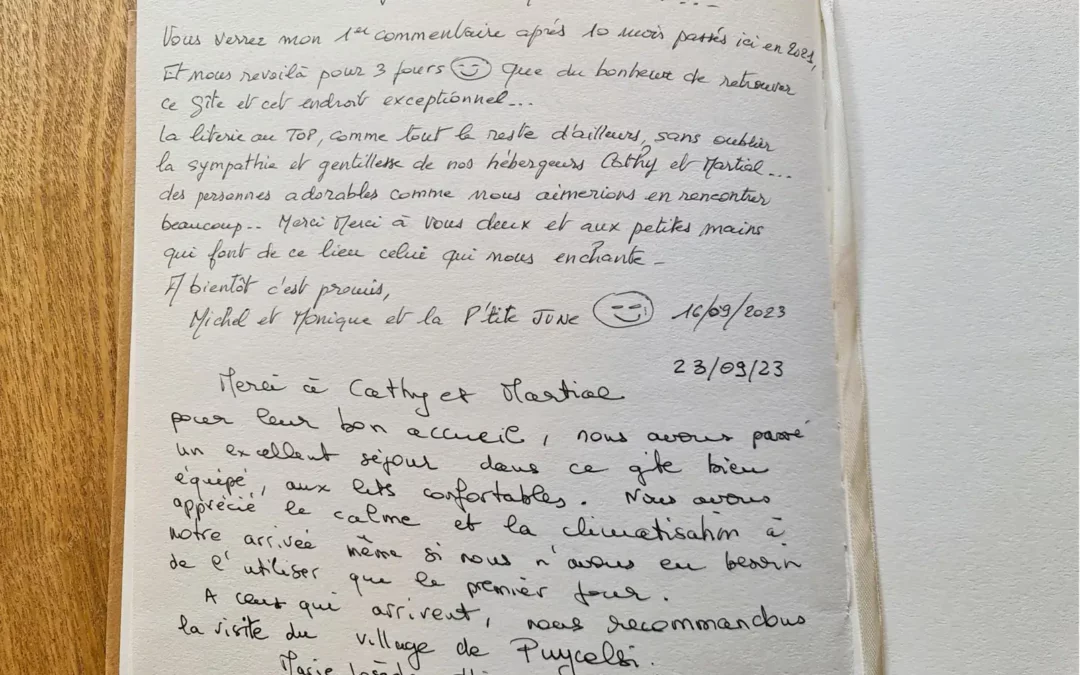 Vous verrez mon 1er commentaire après 10 mois passés ici en 2021,
Et nous revoilà pour 3 jours que du bonheur de retrouver
ce gîte et cet endroit exceptionnel...
La literie au TOP, comme tout le reste d'ailleurs, sans oublier
la sympathie et gentillesse de nos hébergeurs Cathy et Martial...
des personnes adorables comme nous aimerions en rencontrer
beaucoup.. Merci Merci à vous deux et aux petites mains
qui font de ce lieu celui qui nous enchante -
A bientôt c'est promis,
Michel et Monique et la P'tite JUNE 16/09/2023
23/09/23
Merci à Cathy et Martial
pour leur bon accueil, nous avons passé
un excellent séjour dans ce gîte bien
équipé, aux lits confortables. Nous avons
apprécié le calme et la climatisation à
notre arrivée même si nous n'avons eu besoin
de l'utiliser que le premier jour.
A ceux qui arrivent, nous recommandons
la visite du village de Puycelsi.
Marie